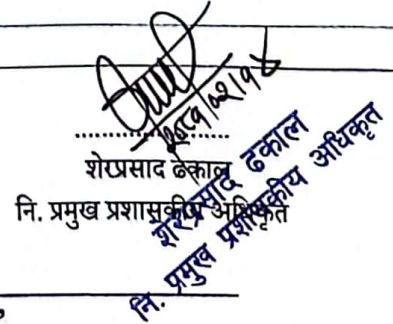 २०८१/०२/१४
शेरप्रसाद ढकाल
नि. प्रमुख प्रशासकीय अधिकृत
शेरप्रसाद ढकाल
नि. प्रमुख प्रशासकीय अधिकृत